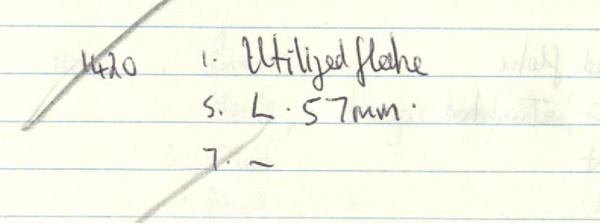 1420 1. Utilized flake
5. L. 57mm.
7. ~